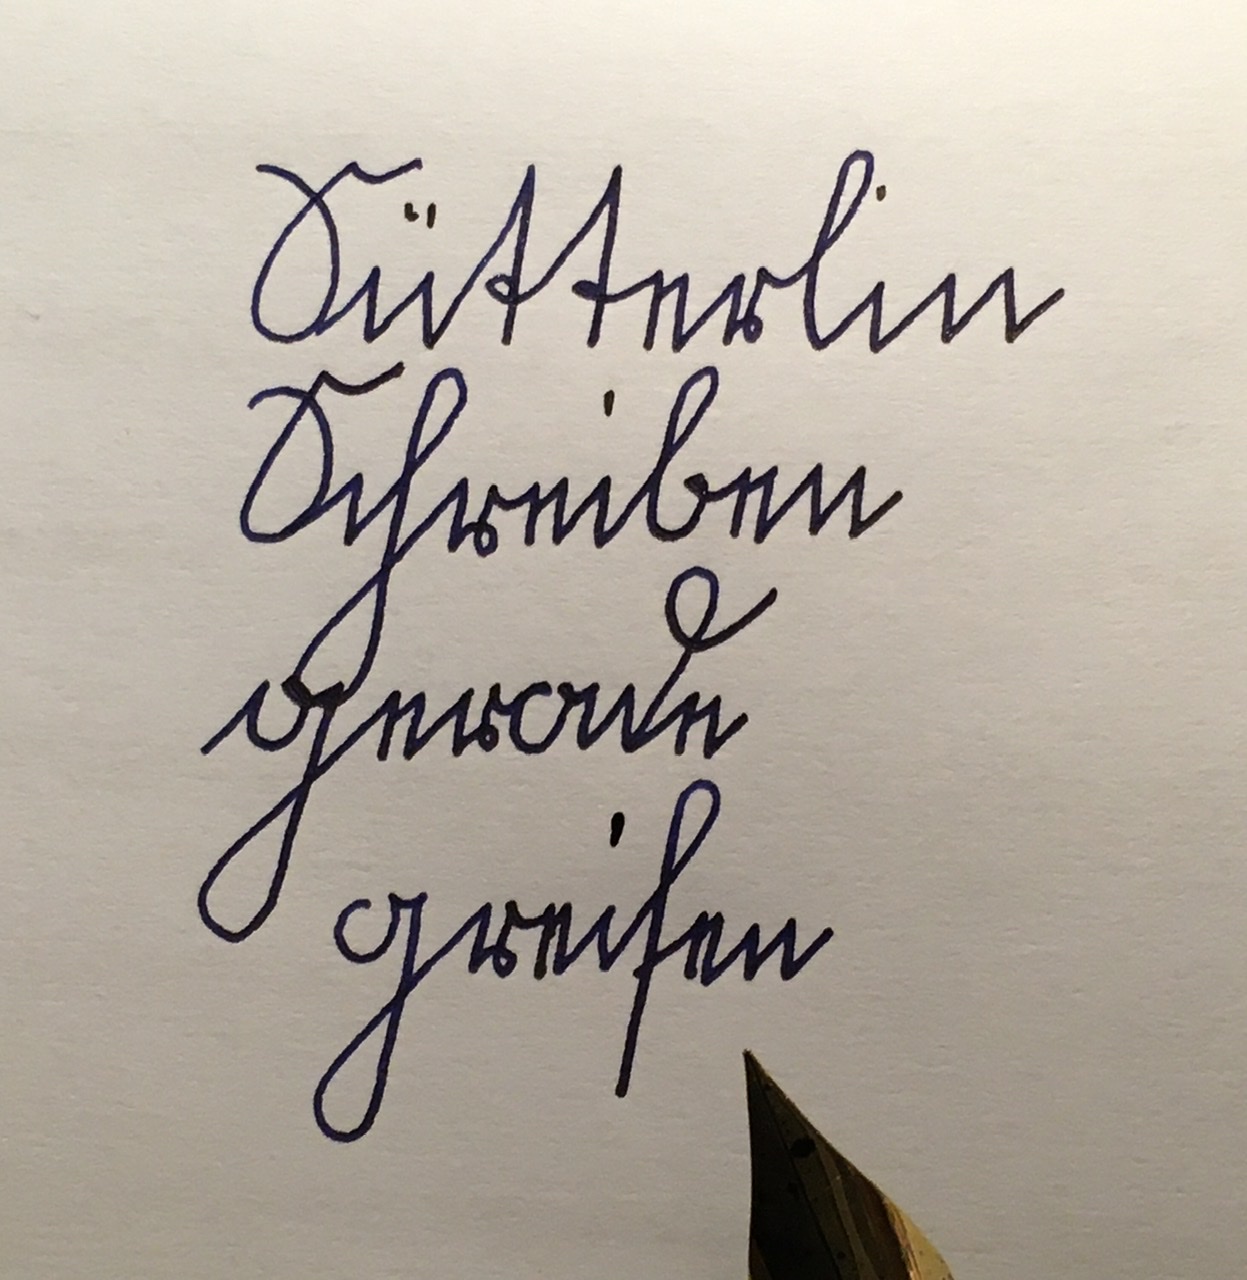 Sütterlin
Schreiben
gerade
greifen